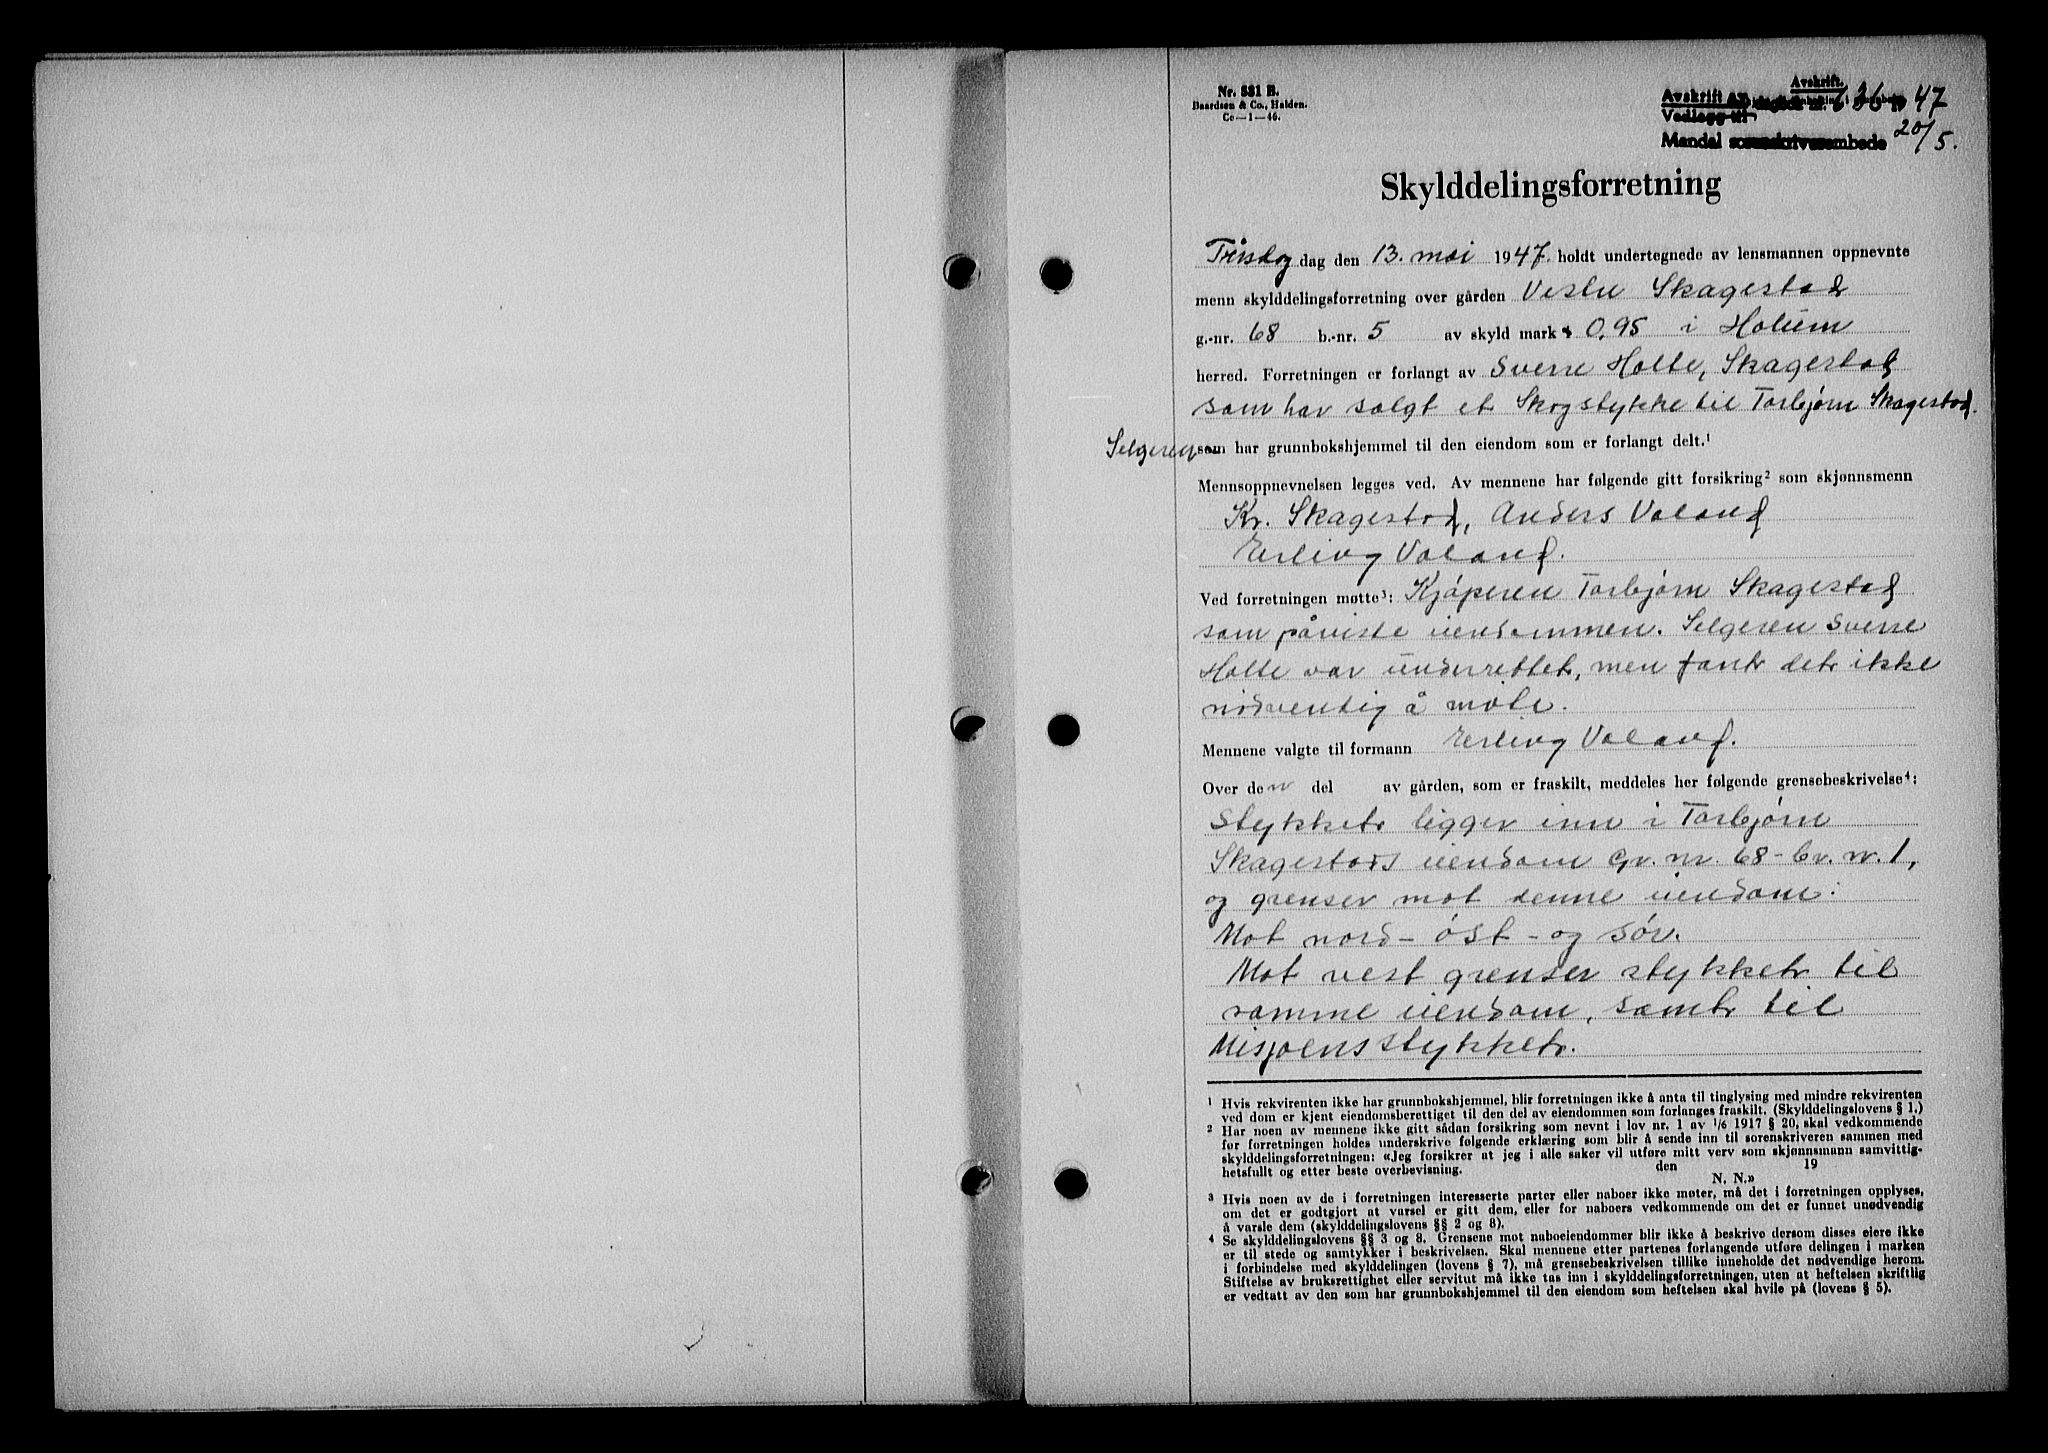 Nr. 331 B.
Baardsen & Co., Halden.
Co—1—46.
Avskrift.
Avskrift nr. 636 1947
Vedlegg til
Mandal sorenskriverembede 20/5.
Skylddelingsforretning
Tirsdag dag den 13. mai 1947. holdt undertegnede av lensmannen oppnevnte
menn skylddelingsforretning over gården Vestre Skagestad
g.-nr. 68 b.-nr. 5 av skyld mark 0,95 i Holum
herred. Forretningen er forlangt av Sverre Holte, Skagestad
som har solgt et Skogstykke til Torbjørn Skagestad.
Selgeren som har grunnbokshjemmel til den eiendom som er forlangt delt.¹
Mennsoppnevnelsen legges ved. Av mennene har følgende gitt forsikring² som skjønnsmenn
Kr. Skagestad, Anders Valand
Erling Valand.
Ved forretningen møtte³: Kjøperen Torbjørn Skagestad
som påviste eiendommen. Selgeren Sverre
Holte var underrettet, men fant det ikke
nødvendig å møte.
Mennene valgte til formann Erling Valand.
Over den del av gården, som er fraskilt, meddeles her følgende grensebeskrivelse⁴:
Stykket ligger inn i Torbjørn
Skagestads eiendom gr. nr. 68 - br. nr. 1,
og grenser mot denne eiendom:
Mot nord - øst - og sør.
Mot vest grenser stykket til
samme eiendom, samt til
Misjonsstykket.
¹ Hvis rekvirenten ikke har grunnbokshjemmel, blir forretningen ikke å anta til tinglysing med mindre rekvirenten
ved dom er kjent eiendomsberettiget til den del av eiendommen som forlanges fraskilt. (Skylddelingslovens § 1.)
² Har noen av mennene ikke gitt sådan forsikring som nevnt i lov nr. 1 av 1/6 1917 § 20, skal vedkommende
før forretningen holdes underskrive følgende erklæring som blir å sende inn til sorenskriveren sammen med
skylddelingsforretningen: «Jeg forsikrer at jeg i alle saker vil utføre mitt verv som skjønnsmann samvittig-
hetsfullt og etter beste overbevisning. den 19
N. N.»
³ Hvis noen av de i forretningen interesserte parter eller naboer ikke møter, må det i forretningen opplyses,
om det er godtgjort at varsel er gitt dem, eller for naboers vedkommende om det er funnet unødvendig
å varsle dem (skylddelingslovens §§ 2 og 8).
⁴ Se skylddelingslovens §§ 3 og 8. Grensene mot naboeiendommer blir ikke å beskrive dersom disses eiere ikke
er til stede og samtykker i beskrivelsen. Skal mennene etter partenes forlangende utføre delingen i marken
i forbindelse med skylddelingen (lovens § 7), må grensebeskrivelsen tillike inneholde det nødvendige herom.
Stiftelse av bruksrettighet eller servitut må ikke tas inn i skylddelingsforretningen, uten at heftelsen skriftlig
er vedtatt av den som har grunnbokshjemmel til den eiendom som heftelsen skal hvile på (lovens § 5).